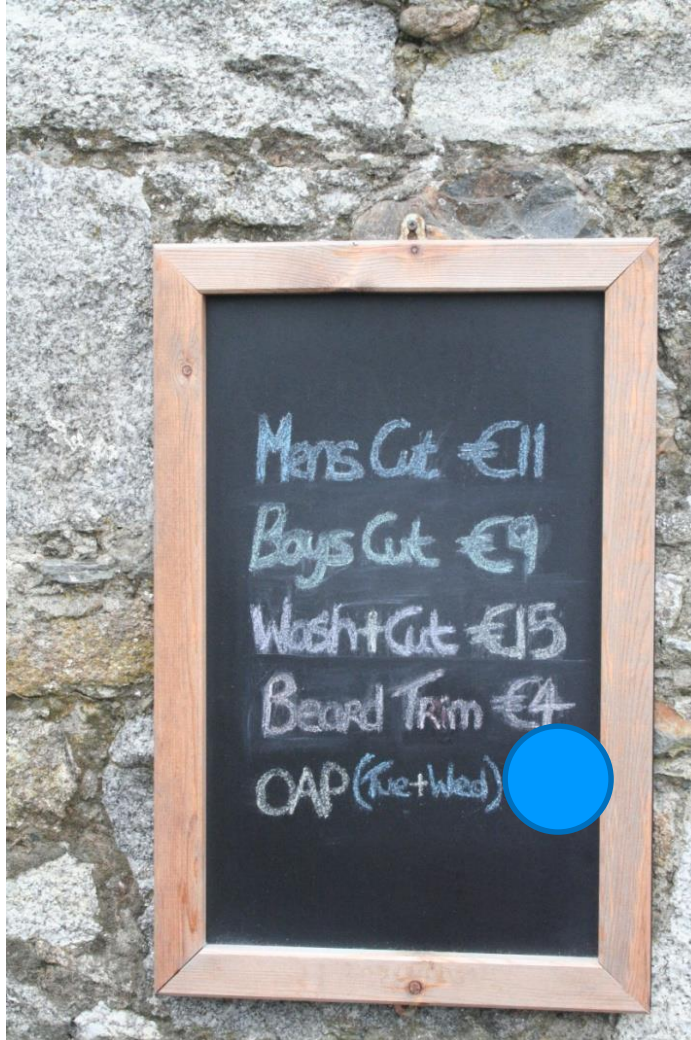 Mens Cut €11
Boys Cut €9
Wash+Cut €15
Beard Trim €4
OAP (Tue+Wed)